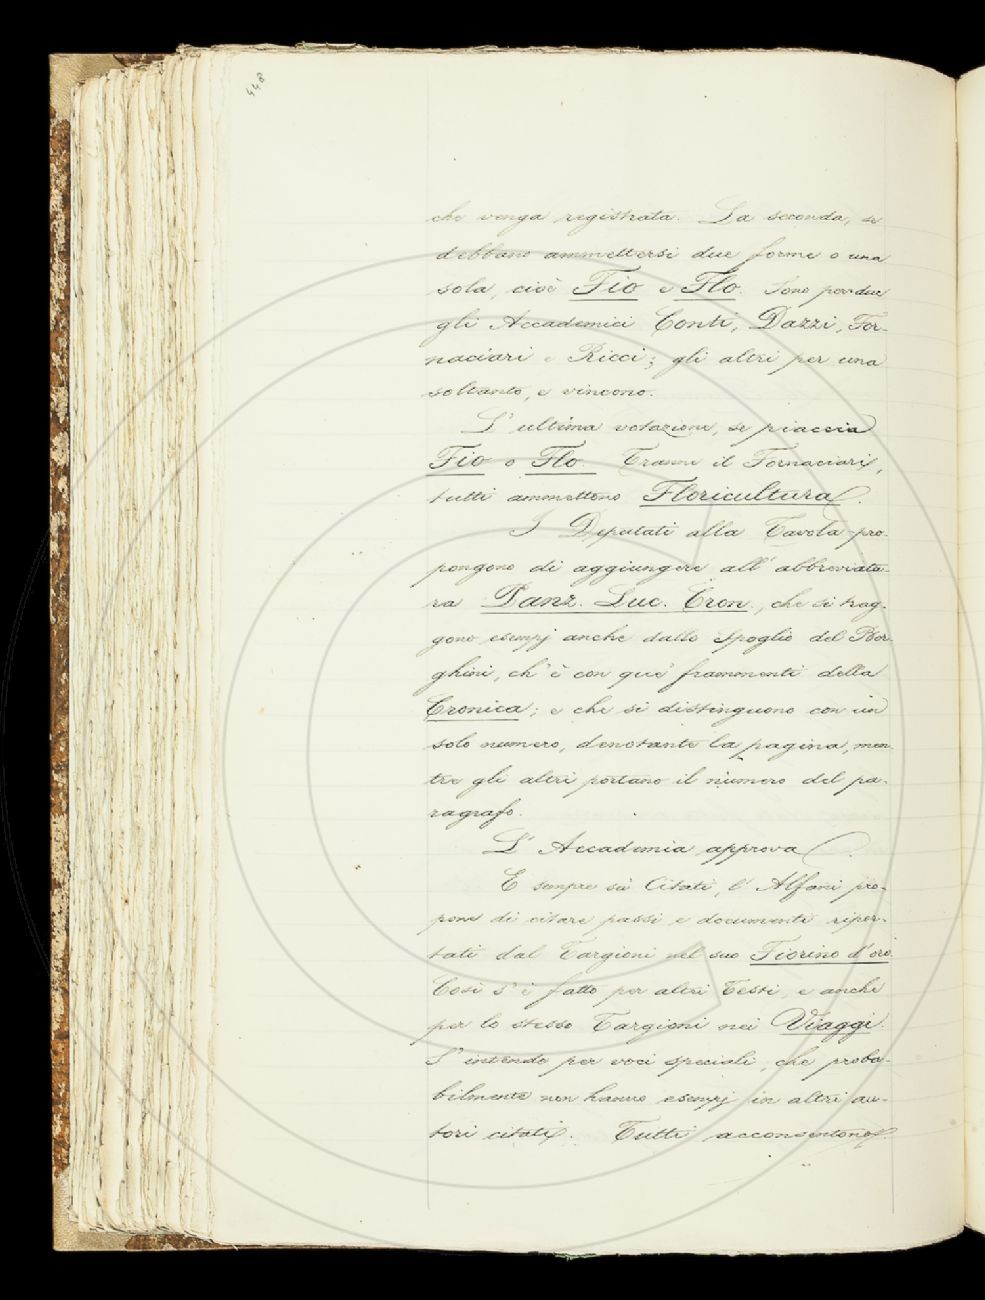 448
che venga registrata. La seconda, se
debbano ammettersi due forme o una
sola, cioè Fio e Flo. Sono per due
gli Accademici Conti, Dazzi, For-
naciari e Ricci; gli altri per una
soltanto, e vincono.
L'ultima votazione, se piaccia
Fio o Flo. Tranne il Fornaciari,
tutti ammettono Floricultura.
I Deputati alla Tavola pro-
pongono di aggiungere all'abbreviatu-
ra Panz. Luc. Cron., che si trag-
gono esempj anche dallo Spoglio del Bor-
ghini, ch'è con que' frammenti della
Cronica; e che si distinguono con un
solo numero, denotante la pagina, men-
tre gli altri portano il numero del pa-
ragrafo.
L'Accademia approva.
E sempre sui Citati, l'Alfani pro-
pone di citare passi e documenti ripor-
tati dal Targioni nel suo Fiorino d'oro.
Così s'è fatto per altri Testi, e anche
per lo stesso Targioni nei Viaggi.
S'intende per voci speciali, che proba-
bilmente non hanno esempj in altri au-
tori citati. Tutti acconsentono.